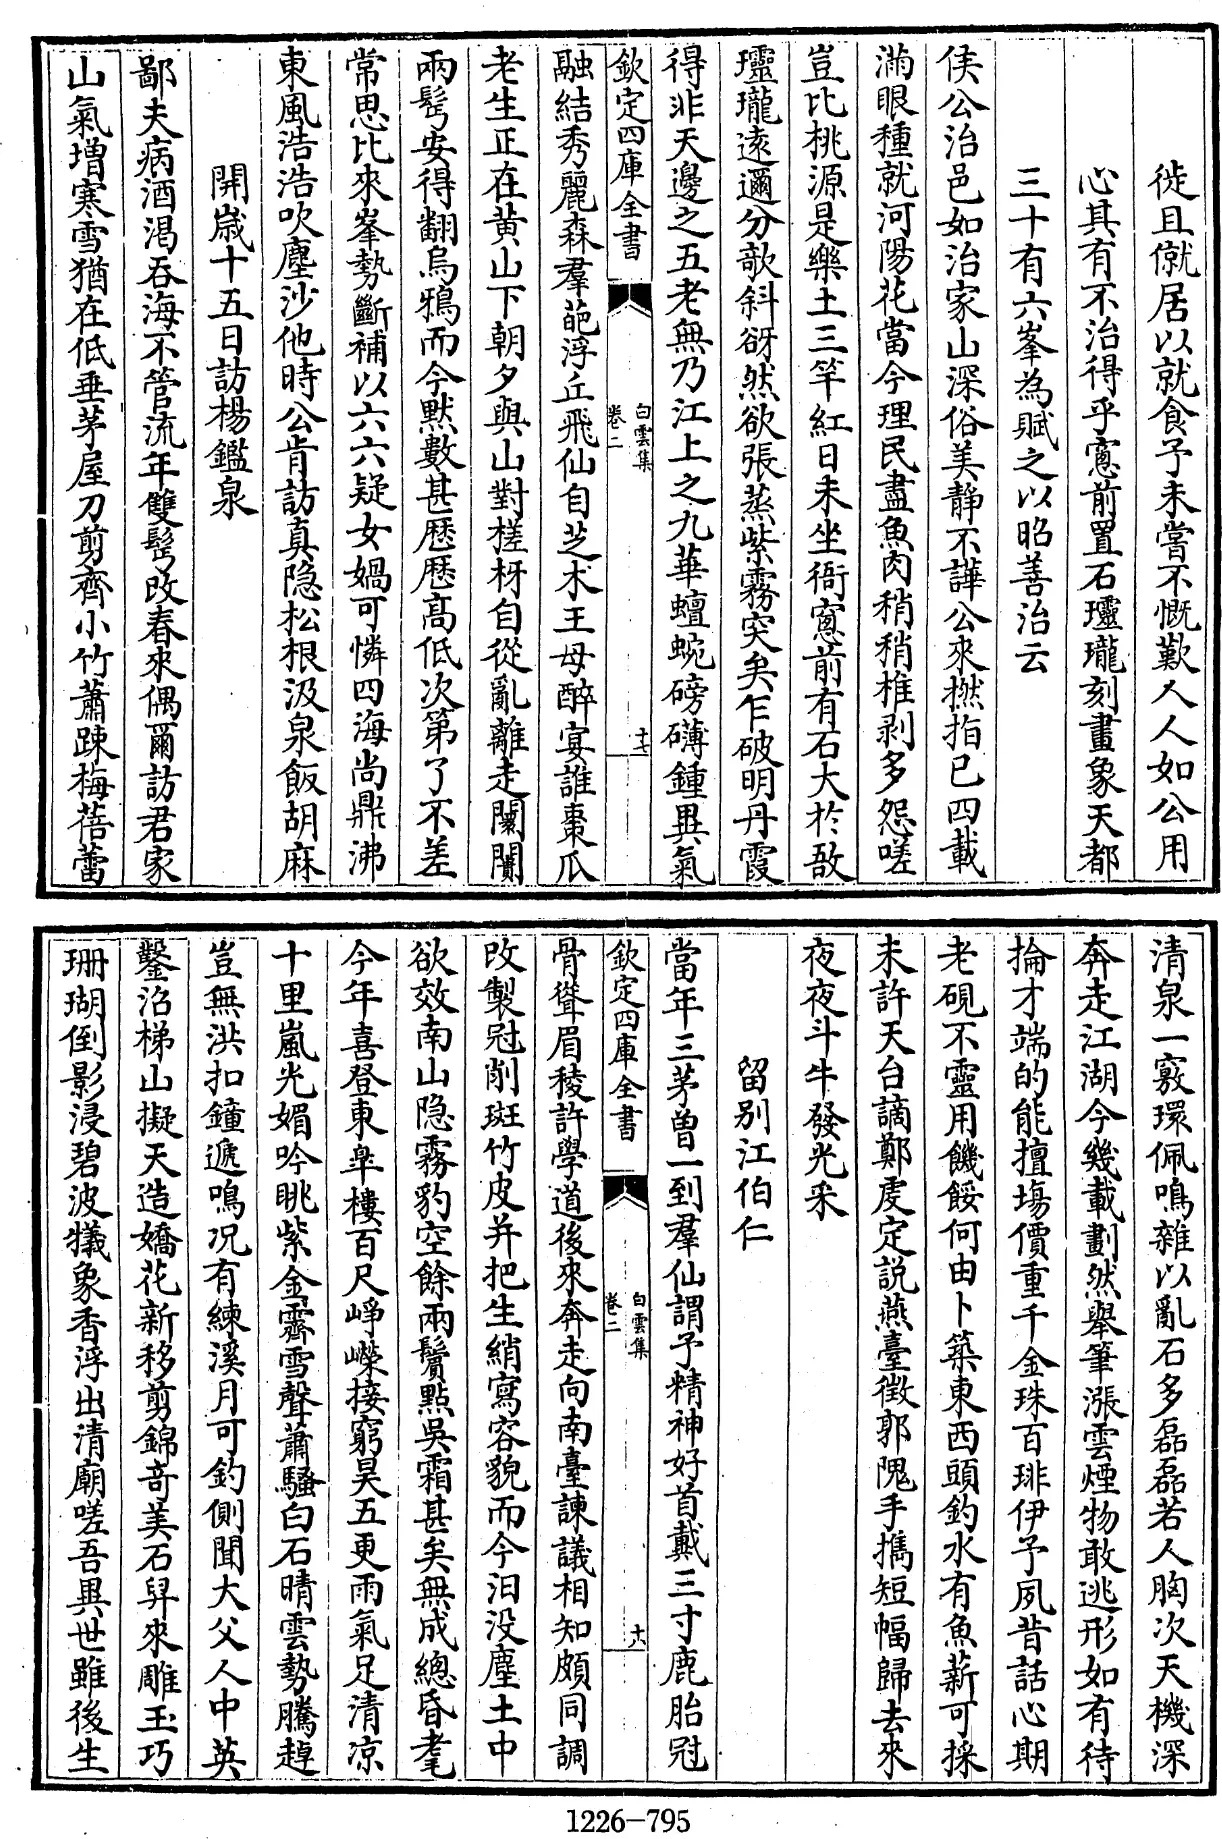 徙且僦居以就食予未嘗不慨歎人人如公用
心其有不治得乎窻前置石瓏瓏刻畫象天都
三十有六峯為賦之以昭善治云
侯公治邑如治家山深俗美靜不譁公來撚指已四載
滿眼種就河陽花當今理民盡魚肉稍稍椎剥多怨嗟
豈比桃源是樂土三竿紅日未坐衙窻前有石大於敔
瓏瓏逺邇分欹斜谺然欲張蒸紫霧突矣乍破明丹霞
得非天邊之五老無乃江上之九華蟺蜿磅礴鍾異氣
欽定四庫全書
白雲集
卷二
十七
融結秀麗森羣葩浮丘飛仙自芝术王母醉宴誰棗瓜
老生正在黄山下朝夕與山對槎枒自從亂離走闤闠
兩髩安得翻烏鴉而今黙數甚歴歴髙低次第了不差
常思比來峯勢斷補以六六疑女媧可憐四海尚鼎沸
東風浩浩吹塵沙他時公肯訪真隐松根汲泉飯胡麻
開嵗十五日訪楊鑑泉
鄙夫病酒渇吞海不管流年雙髩改春來偶爾訪君家
山氣增寒雪猶在低垂茅屋刀剪齊小竹蕭踈梅蓓蕾
清泉一竅環佩鳴雜以亂石多磊磊若人胸次天機深
奔走江湖今幾載劃然舉筆漲雲煙物敢逃形如有待
掄才端的能擅塲價重千金珠百琲伊予夙昔話心期
老硯不靈用饑餒何由卜築東西頭釣水有魚薪可採
未許天台謫鄭䖍定説燕臺徴郭隗手攜短幅歸去來
夜夜斗牛發光采
留别江伯仁
當年三茅曽一到羣仙謂予精神好首戴三寸鹿胎冠
欽定四庫全書
白雲集
卷二
十八
骨聳眉稜許學道後來奔走向南臺諫議相知頗同調
改製冠削斑竹皮并把生綃寫容貌而今汨没塵土中
欲效南山隐霧豹空餘兩鬢點吳霜甚矣無成總昏耄
今年喜登東臯樓百尺崢嶸接窮昊五更雨氣足清凉
十里嵐光媚吟眺紫金霽雪聲蕭騷白石晴雲勢騰趠
豈無洪扣鐘遞鳴况有練溪月可釣側聞大父人中英
鑿沼梯山擬天造嬌花新移剪錦竒美石舁來雕玉巧
珊瑚倒影浸碧波犧象香浮出清廟嗟吾異世雖後生
1226-795